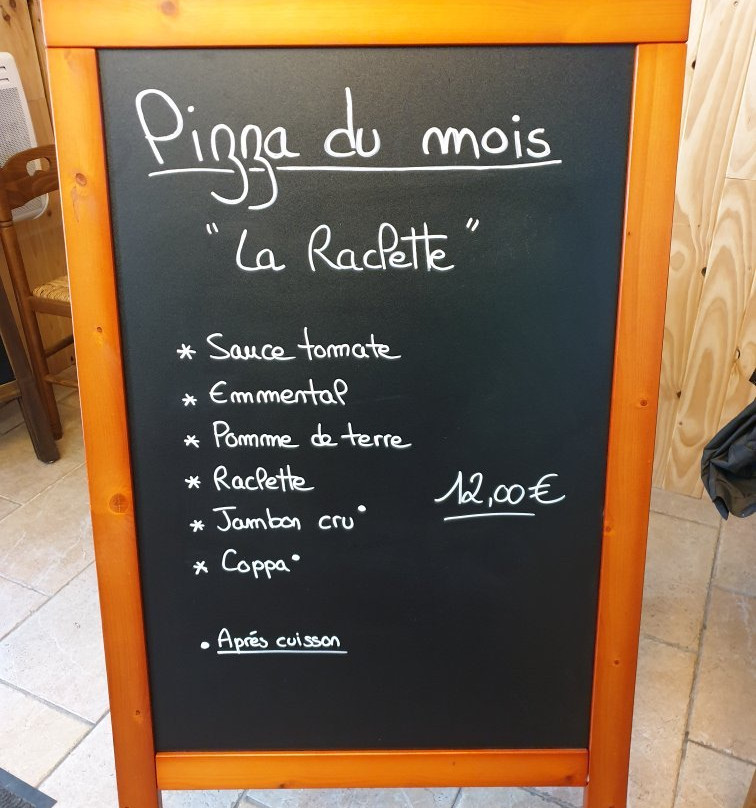 Pizza du mois
"La Raclette"
* Sauce tomate
* Emmental
* Pomme de terre
* Raclette
* Jambon cru•
* Coppa•
12,00€
• Aprés cuisson